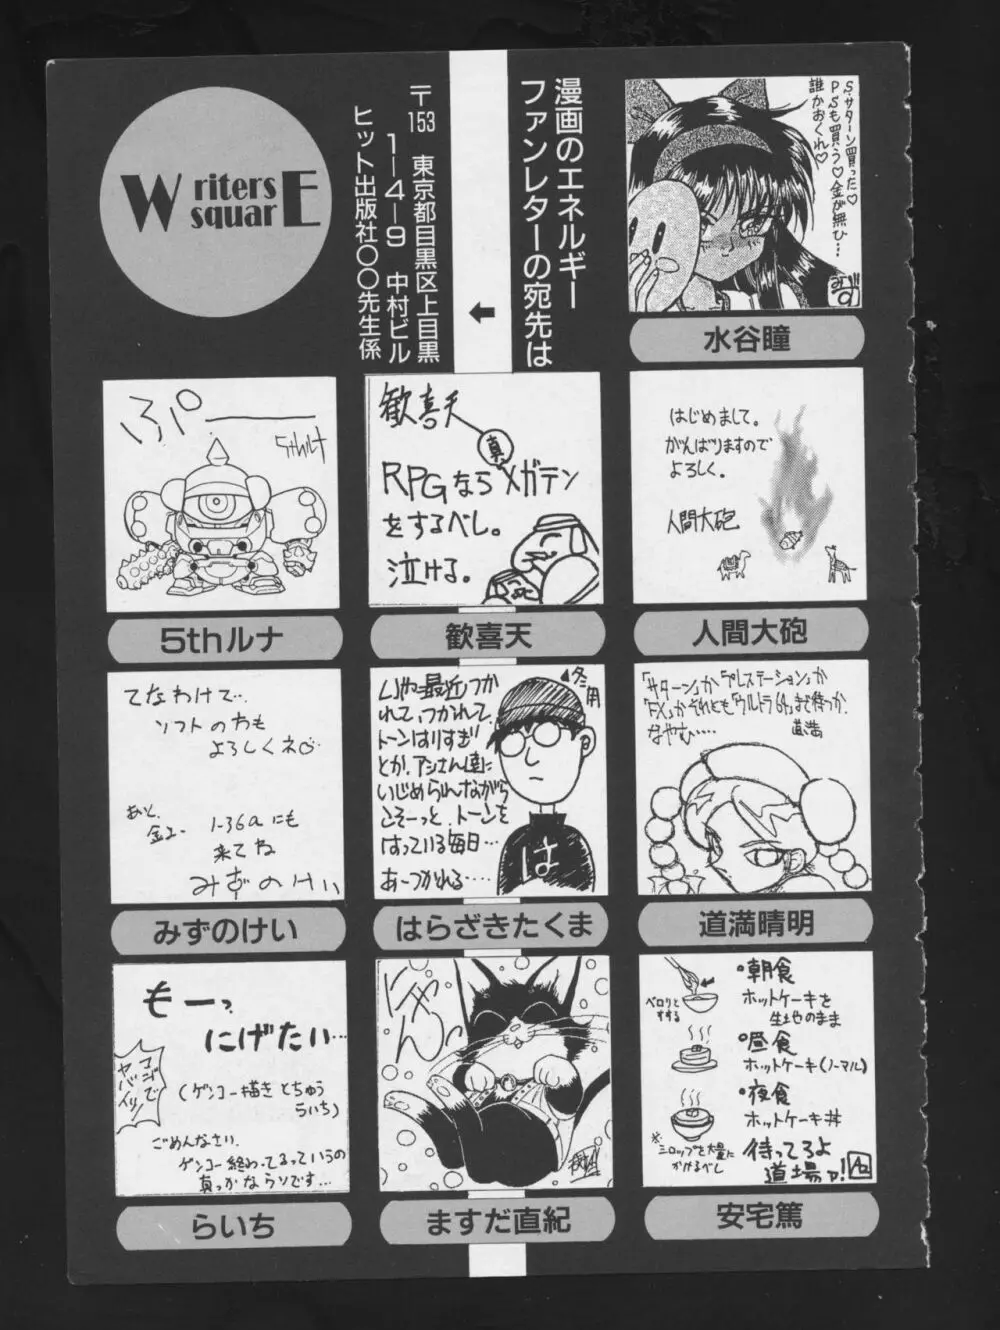 Writers squarE
漫画のエネルギー
ファンレターの宛先は
〒153 東京都目黒区上目黒
1-4-9 中村ビル
ヒット出版社〇〇先生係
S.サターン買った♡
PSも買う♡金が無ひ…
誰かおくれ♡
水谷瞳
ぷ゜
5thルナ
5thルナ
歓喜天
真
RPGならメガテン
をするべし。
泣ける。
歓喜天
はじめまして。
がんばりますので
よろしく。
人間大砲
人間大砲
てなわけで…
ソフトの方も
よろしくネ♡
あと、
金ユー 1-36aにも
来てね
みずのけい
みずのけい
冬用
いや最近つか
れて、つかれて、
トーンはりすぎ
とか、アシさん達に
いじめられながら
こそーっと、トーンを
はっている毎日…
あーつかれる‥‥
は
はらざきたくま
「サターン」か「プレステーション」か
「FX」かそれとも「ウルトラ64」まで待つか、
なやむ‥‥ 道満
道満晴明
もーっ
にげたい…
コゴでヤバイッ!
(ゲンコー描きとちゅう
らいち)
ごめんなさい、
ゲンコー終わってるっていうの
真っかなウソです…
らいち
にゃんっ
ますだ直紀
•朝食
ホットケーキを
生地のまま
ペロリと
すする
•昼食
ホットケーキ(ノーマル)
•夜食
ホットケーキ丼
※シロップを大量に
かけるべし
待ってろよ
道場ァ!
安宅篤